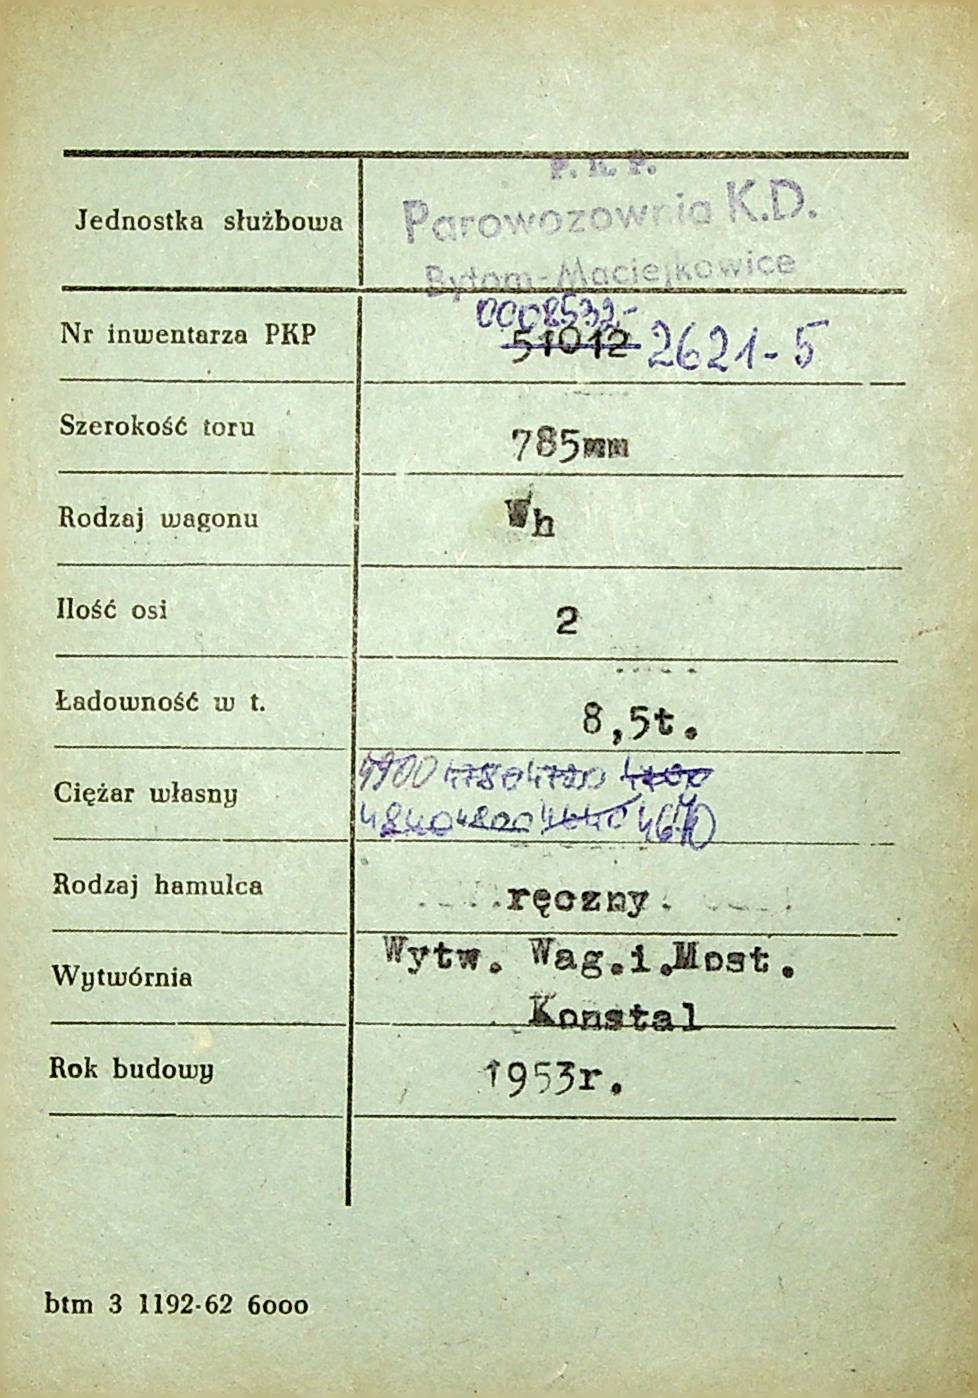 P. K. P.
Jednostka służbowa Parowozownia K.D.
Bytom-Maciejkowice
0008532-
Nr inwentarza PKP 51012 2621-5
Szerokość toru 785mm
Rodzaj wagonu Wh
Ilość osi 2
Ładowność w t. 8,5t.
4900 4780 4720
Ciężar własny
4840 4800 4640 4670
Rodzaj hamulca ręczny.
Wytw. Wag.i.Most.
Wytwórnia
Konstal
Rok budowy 1953r.
btm 3 1192-62 6000